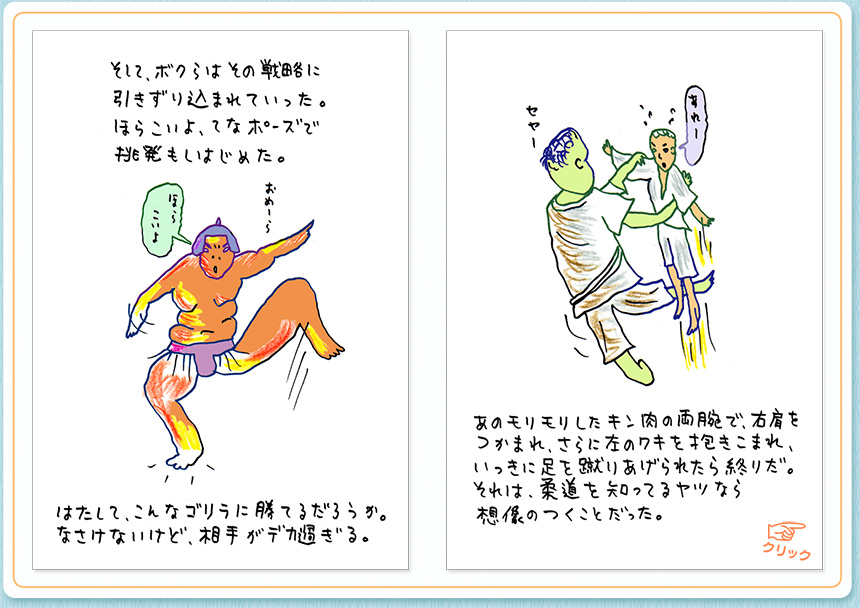 そして、ボクらはその戦略に
引きずり込まれていった。
ほらこいよ、てなポーズで
挑発もしはじめた。
ほら
こいよ
おめーら
はたして、こんなゴリラに勝てるだろうか。
なさけないけど、相手がデカ過ぎる。
セヤー
あれー
あのモリモリしたキン肉の両腕で、右肩を
つかまれ、さらに左のワキを抱きこまれ、
いっきに足を蹴りあげられたら終りだ。
それは、柔道を知ってるヤツなら
想像のつくことだった。
クリック